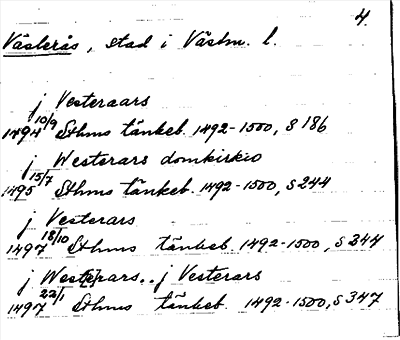 4.
Västerås, stad i Västm. l.
j Vesteraars
1494 10/9 Sthms tänkeb. 1492-1500, S 186
j Westerars domkirkio
1495 15/7 Sthms tänkeb. 1492-1500, S 244
j Vesterars
1497 18/10 Sthms tänkeb. 1492-1500, S 344
j Westerars.. j Vesterars
1497 22/1 Sthms tänkeb. 1492-1500, S 347